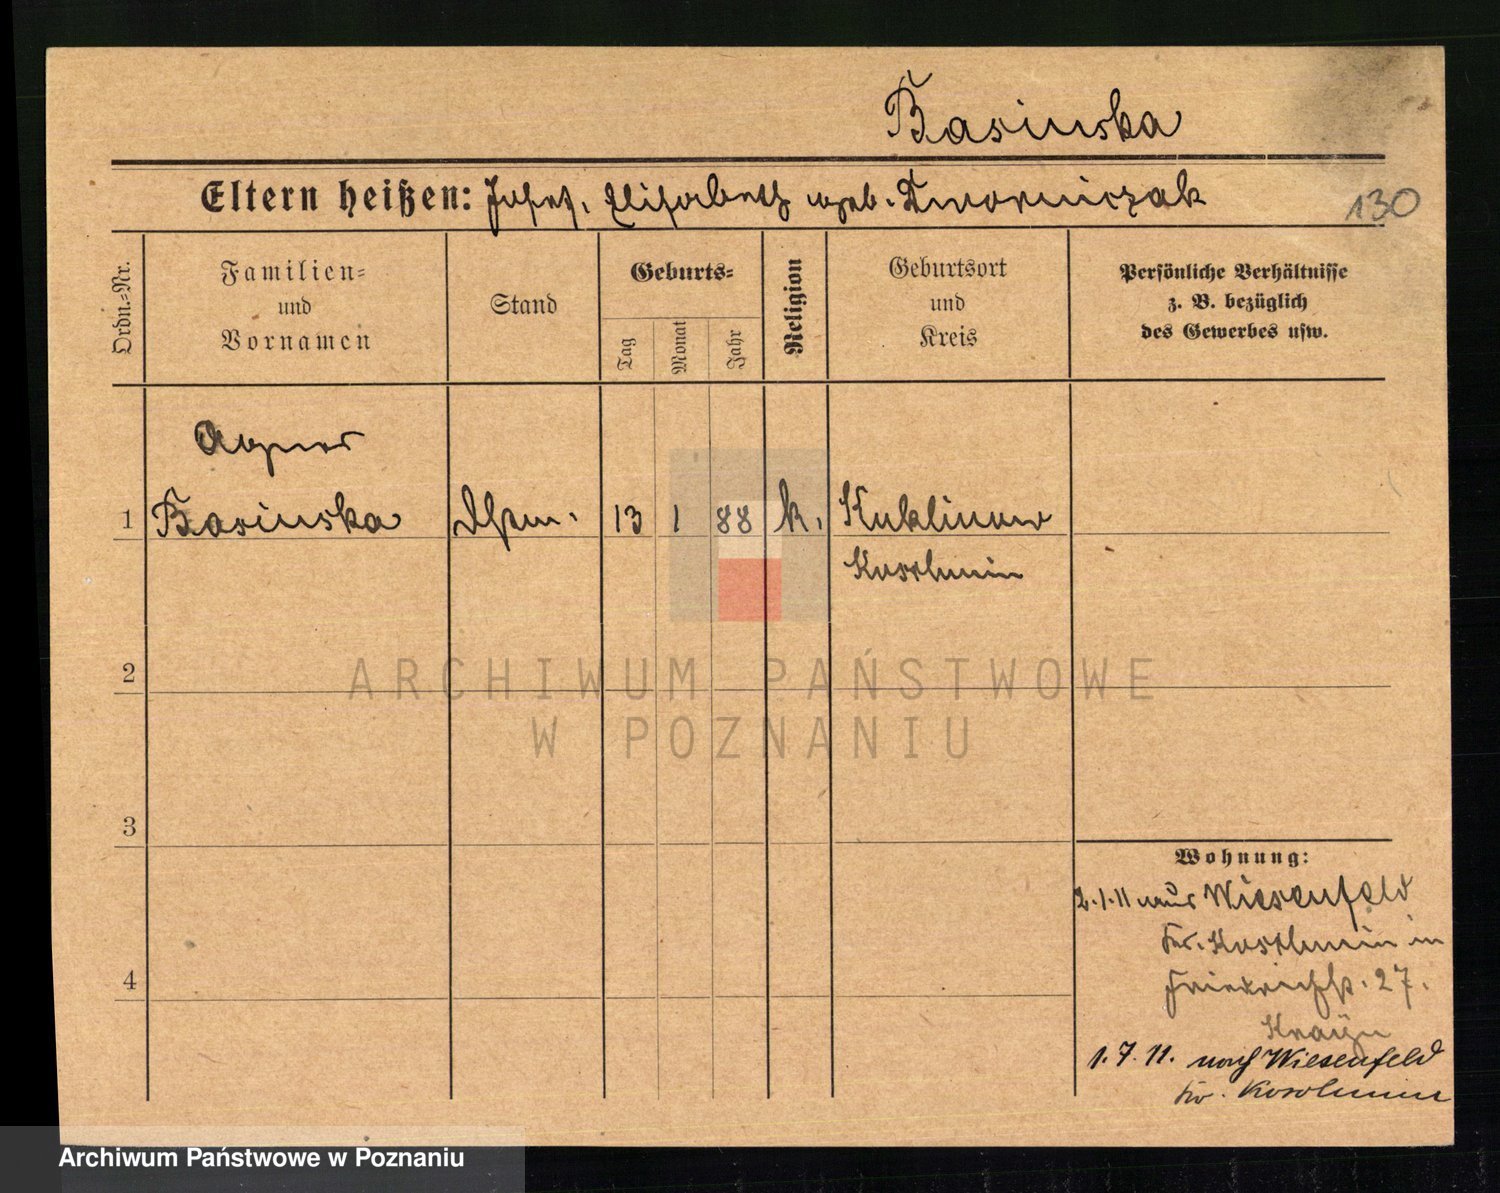 Basinska
Eltern heißen: Josef, Elisabeth geb. Dworniczak
130
Ordn.-Nr.
Familien- und Vornamen
Stand
Geburts-
Tag
Monat
Jahr
Religion
Geburtsort und Kreis
Persönliche Verhältnisse
z. B. bezüglich
des Gewerbes usw.
Agnes
1 Basinska 13 1 88 k. Kuklinow
Koschmin
2
ARCHIWUM PAŃSTWOWE
W POZNANIU
3
Wohnung:
2.1.11 aus Wiesenfeld
Kr. Koschmin in
Friedrichstr. 27.
4
1.7.11. nach Wiesenfeld
Kr. Koschmin
Archiwum Państwowe w Poznaniu